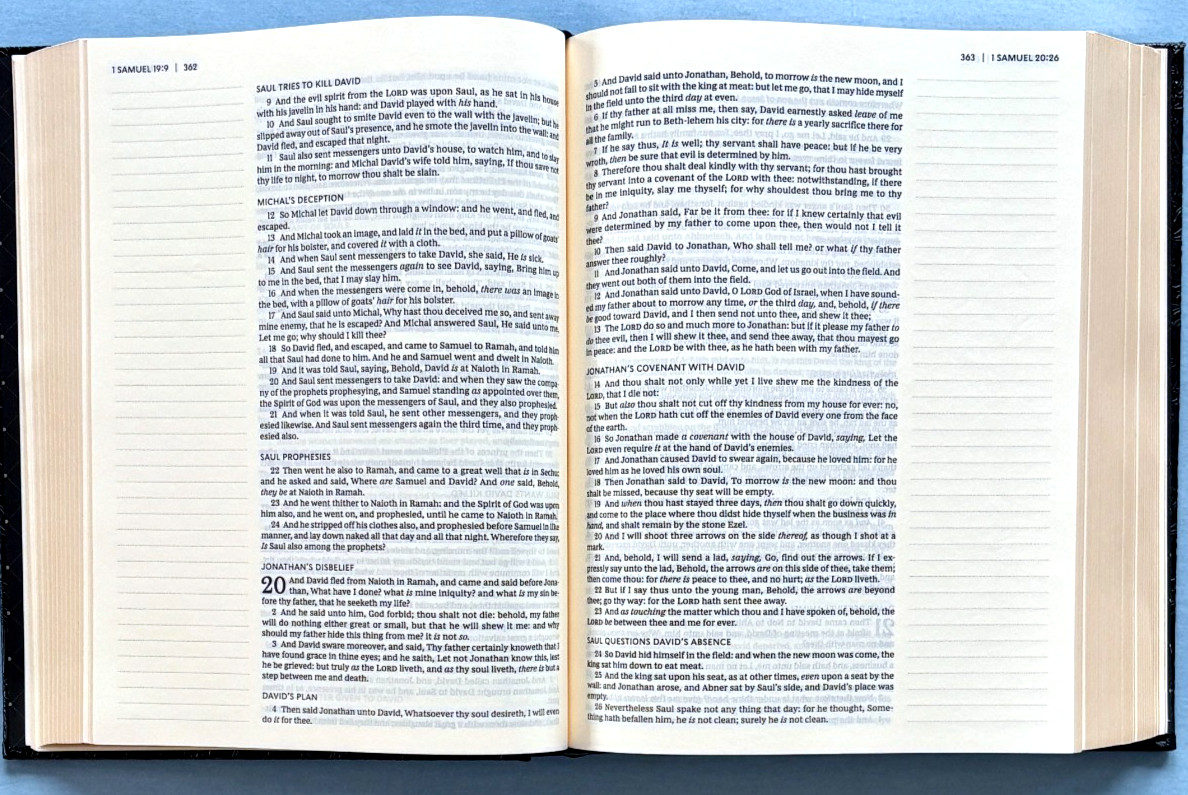 1 SAMUEL 19:9 | 362
SAUL TRIES TO KILL DAVID
9 And the evil spirit from the LORD was upon Saul, as he sat in his house
with his javelin in his hand: and David played with his hand.
10 And Saul sought to smite David even to the wall with the javelin; but he
slipped away out of Saul's presence, and he smote the javelin into the wall: and
David fled, and escaped that night.
11 Saul also sent messengers unto David's house, to watch him, and to slay
him in the morning: and Michal David's wife told him, saying, If thou save not
thy life to night, to morrow thou shalt be slain.
MICHAL'S DECEPTION
12 So Michal let David down through a window: and he went, and fled, and
escaped.
13 And Michal took an image, and laid it in the bed, and put a pillow of goats'
hair for his bolster, and covered it with a cloth.
14 And when Saul sent messengers to take David, she said, He is sick.
15 And Saul sent the messengers again to see David, saying, Bring him up
to me in the bed, that I may slay him.
16 And when the messengers were come in, behold, there was an image in
the bed, with a pillow of goats' hair for his bolster.
17 And Saul said unto Michal, Why hast thou deceived me so, and sent away
mine enemy, that he is escaped? And Michal answered Saul, He said unto me,
Let me go; why should I kill thee?
18 So David fled, and escaped, and came to Samuel to Ramah, and told him
all that Saul had done to him. And he and Samuel went and dwelt in Naioth.
19 And it was told Saul, saying, Behold, David is at Naioth in Ramah.
20 And Saul sent messengers to take David: and when they saw the compa-
ny of the prophets prophesying, and Samuel standing as appointed over them,
the Spirit of God was upon the messengers of Saul, and they also prophesied.
21 And when it was told Saul, he sent other messengers, and they proph-
esied likewise. And Saul sent messengers again the third time, and they proph-
esied also.
SAUL PROPHESIES
22 Then went he also to Ramah, and came to a great well that is in Sechu:
and he asked and said, Where are Samuel and David? And one said, Behold,
they be at Naioth in Ramah.
23 And he went thither to Naioth in Ramah: and the Spirit of God was upon
him also, and he went on, and prophesied, until he came to Naioth in Ramah.
24 And he stripped off his clothes also, and prophesied before Samuel in like
manner, and lay down naked all that day and all that night. Wherefore they say,
Is Saul also among the prophets?
JONATHAN'S DISBELIEF
20 And David fled from Naioth in Ramah, and came and said before Jona-
than, What have I done? what is mine iniquity? and what is my sin be-
fore thy father, that he seeketh my life?
2 And he said unto him, God forbid; thou shalt not die: behold, my father
will do nothing either great or small, but that he will shew it me: and why
should my father hide this thing from me? it is not so.
3 And David sware moreover, and said, Thy father certainly knoweth that I
have found grace in thine eyes; and he saith, Let not Jonathan know this, lest
he be grieved: but truly as the LORD liveth, and as thy soul liveth, there is but a
step between me and death.
DAVID'S PLAN
4 Then said Jonathan unto David, Whatsoever thy soul desireth, I will even
do it for thee.
363 | 1 SAMUEL 20:26
5 And David said unto Jonathan, Behold, to morrow is the new moon, and I
should not fail to sit with the king at meat: but let me go, that I may hide myself
in the field unto the third day at even.
6 If thy father at all miss me, then say, David earnestly asked leave of me
that he might run to Beth-lehem his city: for there is a yearly sacrifice there for
all the family.
7 If he say thus, It is well; thy servant shall have peace: but if he be very
wroth, then be sure that evil is determined by him.
8 Therefore thou shalt deal kindly with thy servant; for thou hast brought
thy servant into a covenant of the LORD with thee: notwithstanding, if there
be in me iniquity, slay me thyself; for why shouldest thou bring me to thy
father?
9 And Jonathan said, Far be it from thee: for if I knew certainly that evil
were determined by my father to come upon thee, then would not I tell it
thee?
10 Then said David to Jonathan, Who shall tell me? or what if thy father
answer thee roughly?
11 And Jonathan said unto David, Come, and let us go out into the field. And
they went out both of them into the field.
12 And Jonathan said unto David, O LORD God of Israel, when I have sound-
ed my father about to morrow any time, or the third day, and, behold, if there
be good toward David, and I then send not unto thee, and shew it thee;
13 The LORD do so and much more to Jonathan: but if it please my father to
do thee evil, then I will shew it thee, and send thee away, that thou mayest go
in peace: and the LORD be with thee, as he hath been with my father.
JONATHAN'S COVENANT WITH DAVID
14 And thou shalt not only while yet I live shew me the kindness of the
LORD, that I die not:
15 But also thou shalt not cut off thy kindness from my house for ever: no,
not when the LORD hath cut off the enemies of David every one from the face
of the earth.
16 So Jonathan made a covenant with the house of David, saying, Let the
LORD even require it at the hand of David's enemies.
17 And Jonathan caused David to swear again, because he loved him: for he
loved him as he loved his own soul.
18 Then Jonathan said to David, To morrow is the new moon: and thou
shalt be missed, because thy seat will be empty.
19 And when thou hast stayed three days, then thou shalt go down quickly,
and come to the place where thou didst hide thyself when the business was in
hand, and shalt remain by the stone Ezel.
20 And I will shoot three arrows on the side thereof, as though I shot at a
mark.
21 And, behold, I will send a lad, saying, Go, find out the arrows. If I ex-
pressly say unto the lad, Behold, the arrows are on this side of thee, take them;
then come thou: for there is peace to thee, and no hurt; as the LORD liveth.
22 But if I say thus unto the young man, Behold, the arrows are beyond
thee; go thy way: for the LORD hath sent thee away.
23 And as touching the matter which thou and I have spoken of, behold, the
LORD be between thee and me for ever.
SAUL QUESTIONS DAVID'S ABSENCE
24 So David hid himself in the field: and when the new moon was come, the
king sat him down to eat meat.
25 And the king sat upon his seat, as at other times, even upon a seat by the
wall: and Jonathan arose, and Abner sat by Saul's side, and David's place was
empty.
26 Nevertheless Saul spake not any thing that day: for he thought, Some-
thing hath befallen him, he is not clean; surely he is not clean.